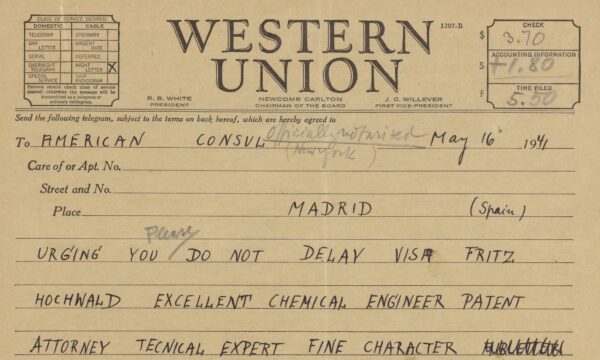 CLASS OF SERVICE DESIRED
DOMESTIC CABLE
TELEGRAM ORDINARY
DAY LETTER URGENT RATE
SERIAL DEFERRED
OVERNIGHT TELEGRAM NIGHT LETTER X
SPECIAL SERVICE SHIP RADIOGRAM
Patrons should check class of service
desired; otherwise the message will be
transmitted as a telegram or
ordinary cablegram.
WESTERN
UNION
1207-B
R. B. WHITE
PRESIDENT
NEWCOMB CARLTON
CHAIRMAN OF THE BOARD
J. C. WILLEVER
FIRST VICE-PRESIDENT
CHECK
$ 3.70
ACCOUNTING INFORMATION
S +1.80
TIME FILED
F 5.50
Send the following telegram, subject to the terms on back hereof, which are hereby agreed to
To AMERICAN CONSUL officially notarized May 16 1941
(New York)
Care of or Apt. No.
Street and No.
Place MADRID (Spain)
Please
URGING YOU DO NOT DELAY VISA FRITZ
HOCHWALD EXCELLENT CHEMICAL ENGINEER PATENT
ATTORNEY TECNICAL EXPERT FINE CHARACTER